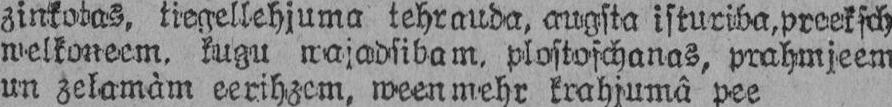 zinkotas, tiegellehjuma tehrauda, augsta isturiba, preeksch
welkoneem, kugu wajadsibam, plostoschanas, prahmjeem
un zelamàm eerihzem, weenmehr krahjumâ pee